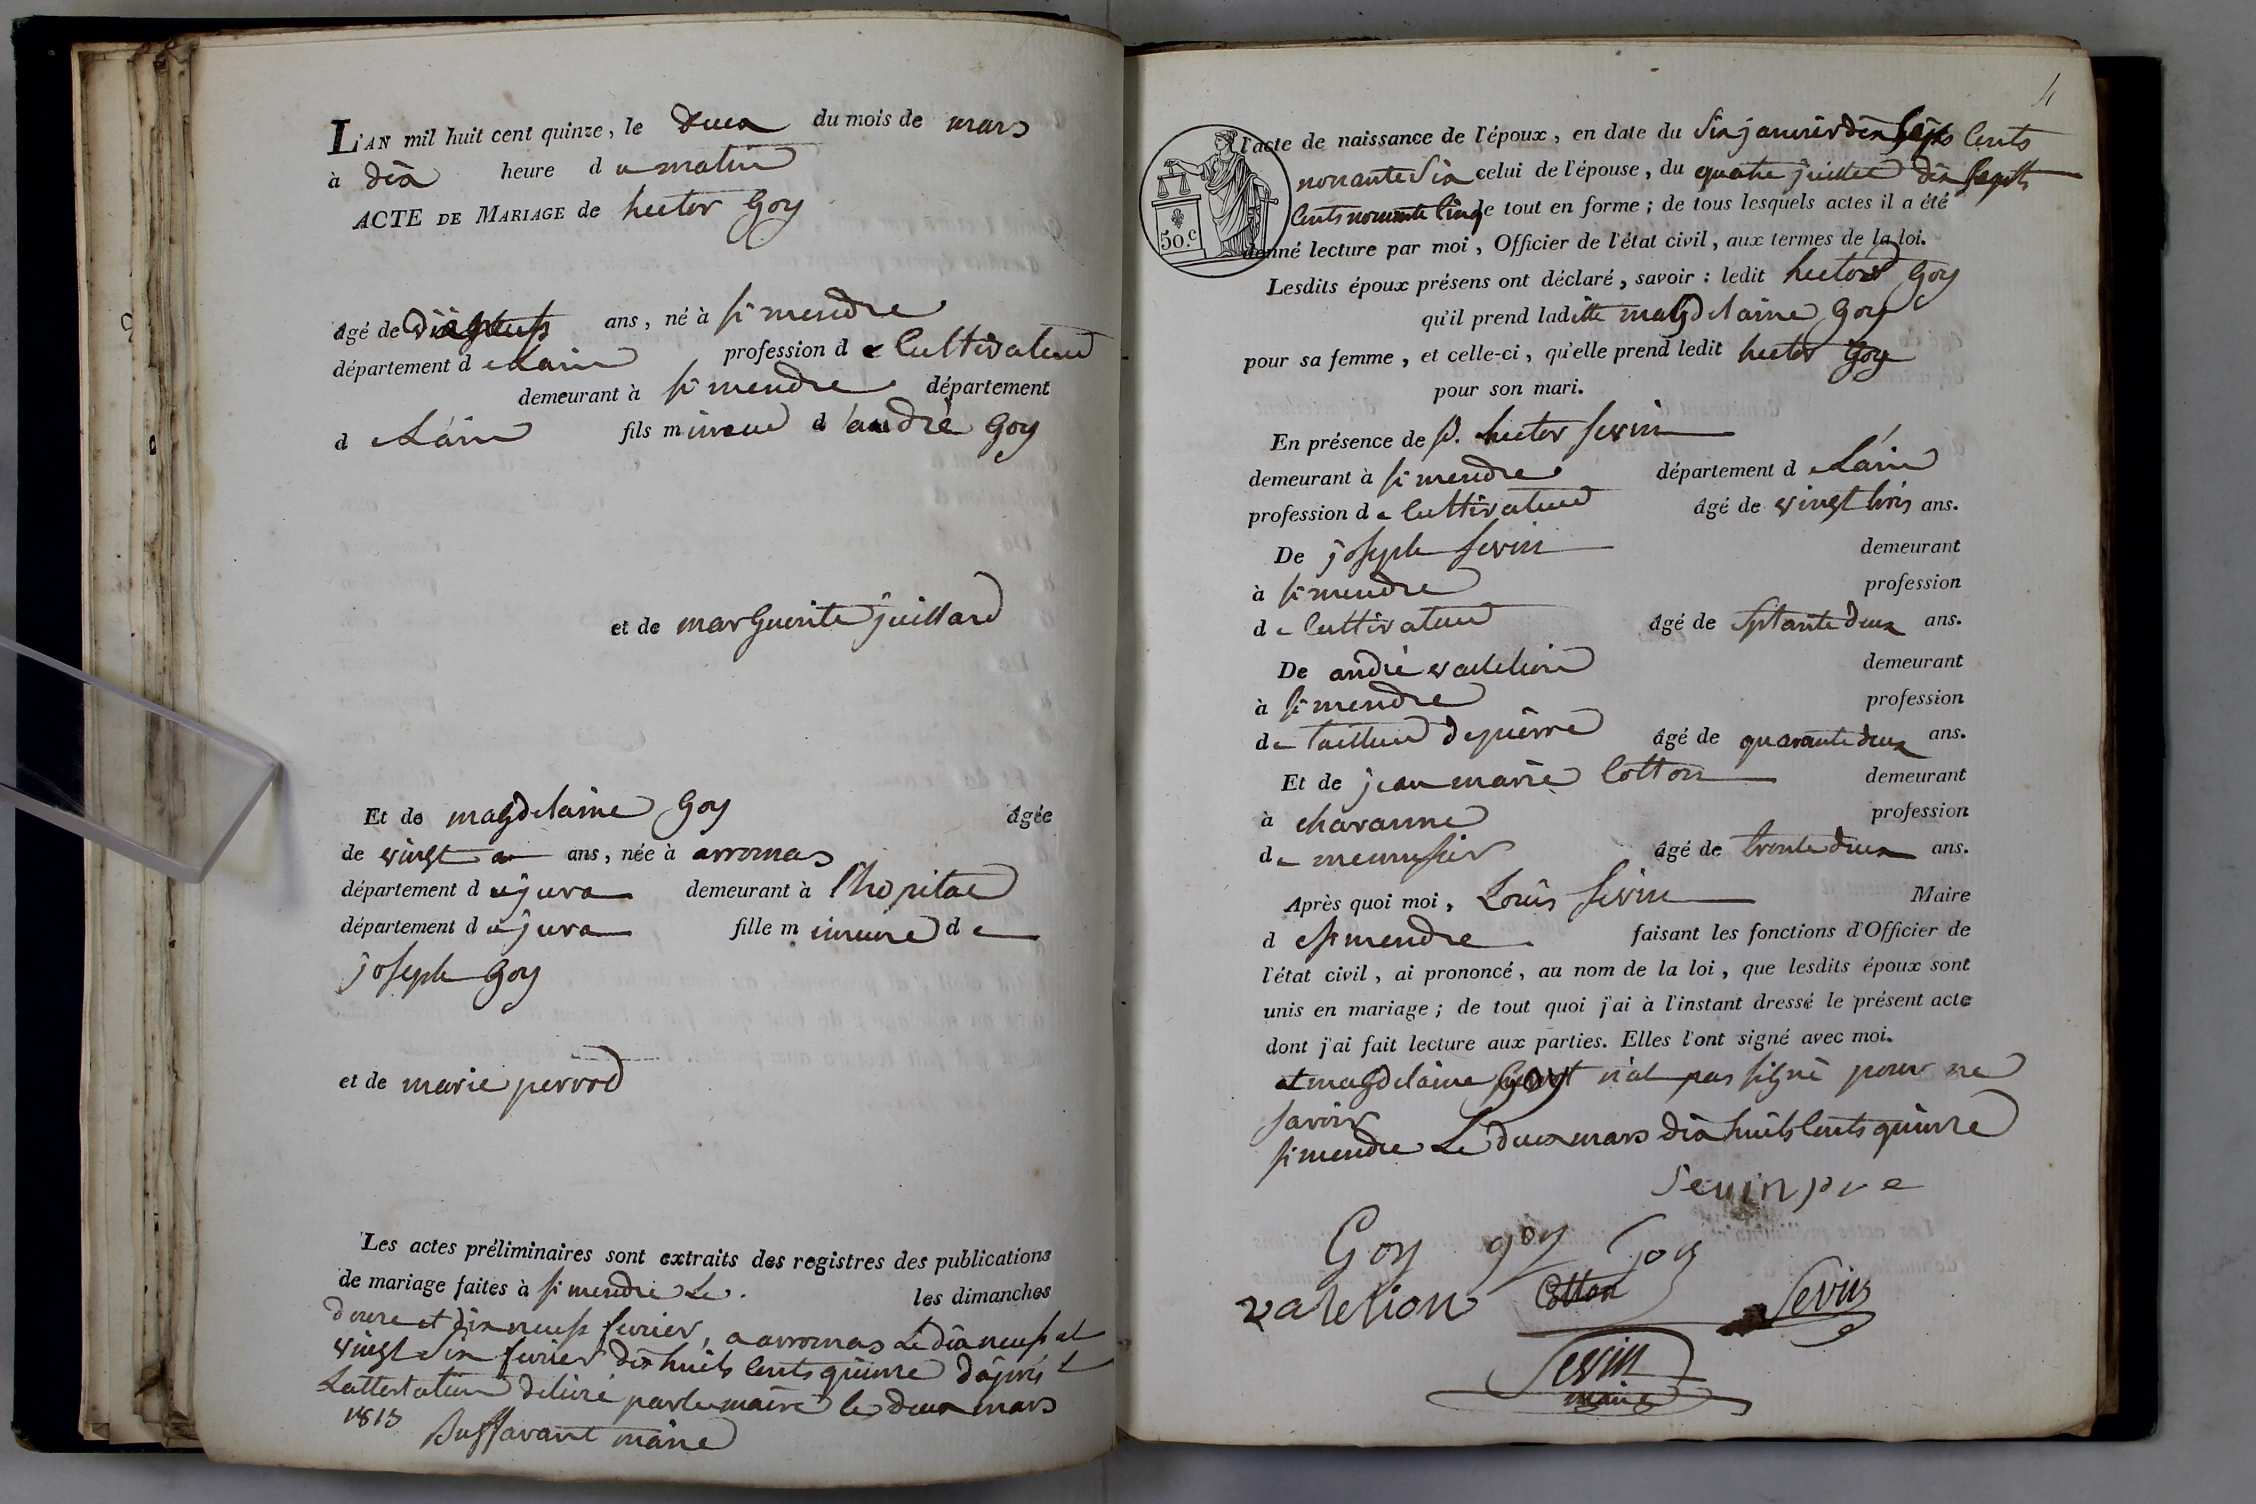 L'AN mil huit cent quinze, le deux du mois de mars
à dix heure du matin
ACTE DE MARIAGE de hector Goy
âgé de dix neuf ans, né à st mendre
département de Lain profession de Cultivateur
demeurant à st mendre département
de Lain fils mineur d'andré Goy
et de marguerite juillard
Et de magdelaine Goy âgée
de vingt ans, née à arromas
département du jura demeurant à l'hopital
département du jura fille mineure de
joseph Goy
et de marie perrod
Les actes préliminaires sont extraits des registres des publications
de mariage faites à st mendre Le. les dimanches
douze et dix neuf fevrier, a arromas Le dix neuf et
vingt six fevrier dix huits cents quinze d'après
Lattestation delivré par le maire le deux mars
1815 Buffavant maire
4
50.c
l'acte de naissance de l'époux, en date du six janvier dix sept Cents
nonante six celui de l'épouse, du quatre juillet dix septs
Cents nonante Cinq le tout en forme; de tous lesquels actes il a été
donné lecture par moi, Officier de l'état civil, aux termes de la loi.
Lesdits époux présens ont déclaré, savoir : ledit hector Goy
qu'il prend laditte magdelaine Goy
pour sa femme, et celle-ci, qu'elle prend ledit hector Goy
pour son mari.
En présence de hector sevin
demeurant à st mendre département de Lain
profession de Cultivateur âgé de vingt trois ans.
De joseph sevin demeurant
à st mendre profession
de Cultivateur âgé de septante deux ans.
De andré demeurant
à st mendre profession
de tailleur de pierre âgé de quarante deux ans.
Et de jean marie Cotton demeurant
à chavanne profession
de menusier âgé de trente deux ans.
Après quoi moi, Louis sevin Maire
de st mendre faisant les fonctions d'Officier de
l'état civil, ai prononcé, au nom de la loi, que lesdits époux sont
unis en mariage; de tout quoi j'ai à l'instant dressé le présent acte
dont j'ai fait lecture aux parties. Elles l'ont signé avec moi.
et magdelaine goy n'at pas signé pour ne
savoir
st mendre Le deux mars dix huits Cents quinze
Sevin pre
Goy goy goy
vatelion Cotton Sevin
Sevin
maire